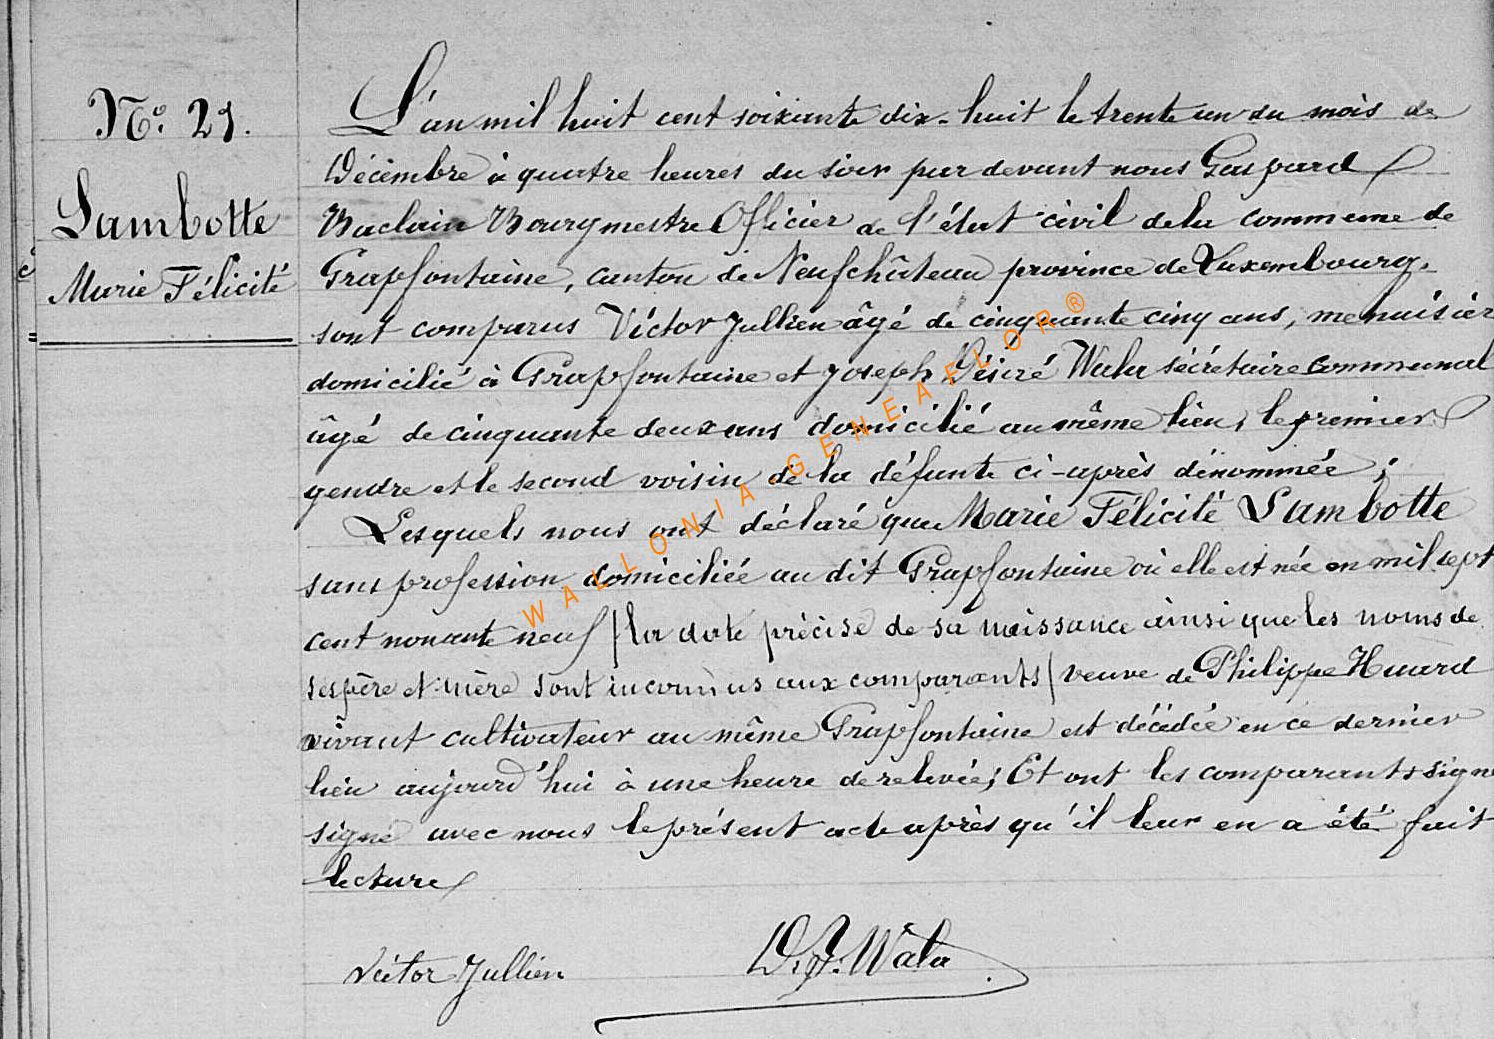 N.° 21.
Lambotte
Marie Félicité
L'an mil huit cent soixante dix-huit le trente un du mois de
Décembre à quatre heures du soir par devant nous Gaspard
Baclain Bourgmestre Officier de l'état civil de la commune de
Grapfontaine, canton de Neufchâteau province de Luxembourg.
sont comparus Victor Jullien âgé de cinquante cinq ans, menuisier
domicilié à Grapfontaine et Joseph Désiré Wala sécrétaire communal
âgé de cinquante deux ans domicilié au même lieu, le premier
gendre et le second voisin de la défunte ci-après dénommée;
Lesquels nous ont déclaré que Marie Félicité Lambotte
sans profession domiciliée au dit Grapfontaine où elle est née en mil sept
cent nonante neuf / la date précise de sa naissance ainsi que les noms de
ses père et mère sont inconnus aux comparants / veuve de Philippe Huard
vivant cultivateur au même Grapfontaine est décédée en ce dernier
lieu aujourd'hui à une heure de relevée; Et ont les comparants signé
signé avec nous le présent acte après qu'il leur en a été fait
lecture
Victor Jullien
D. J. Wala
WALLONIA GENEAFLOR®